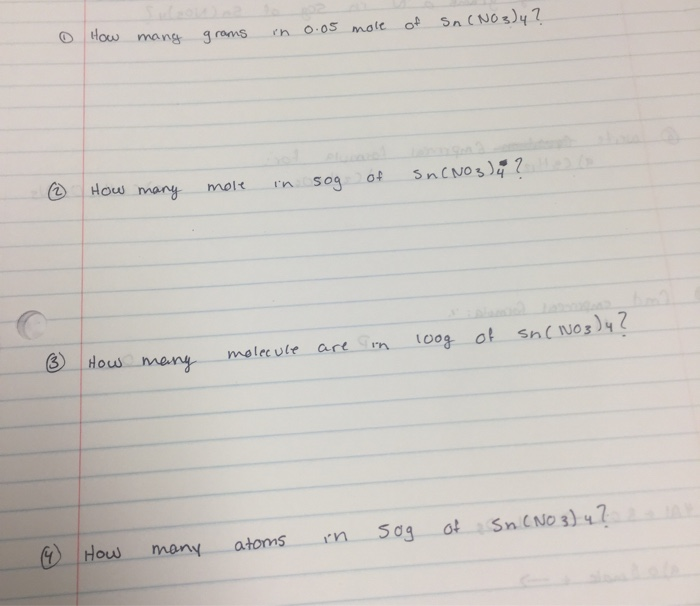 ① How many grams in 0.05 mole of Sn(NO3)4?
② How many mole in 50g of Sn(NO3)4?
③ How many molecule are in 100g of Sn(NO3)4?
④ How many atoms in 50g of Sn(NO3)4?